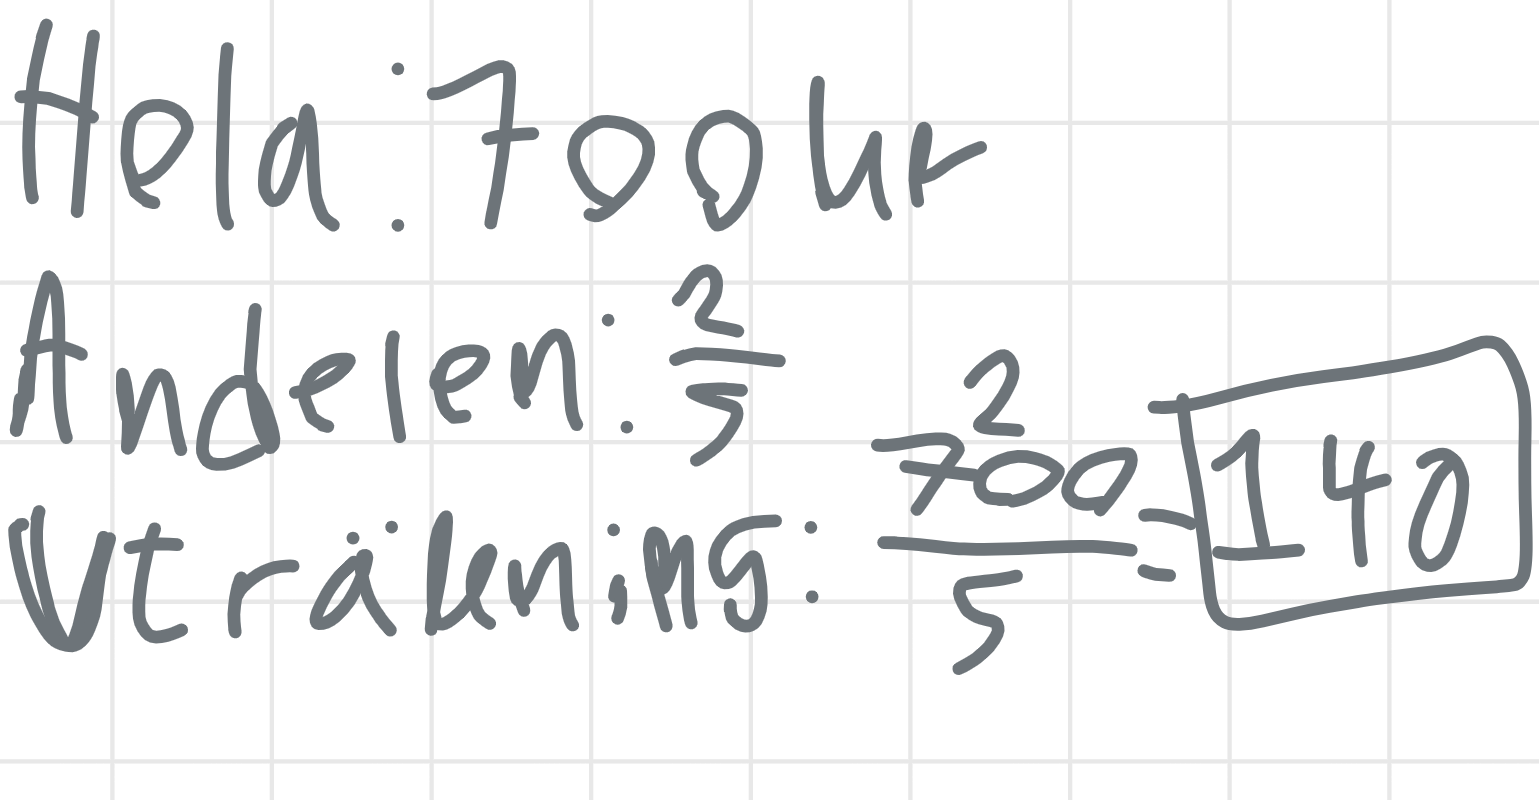 Hela: 700kr
Andelen: 2/5
Uträkning: 2
700/5 = 140